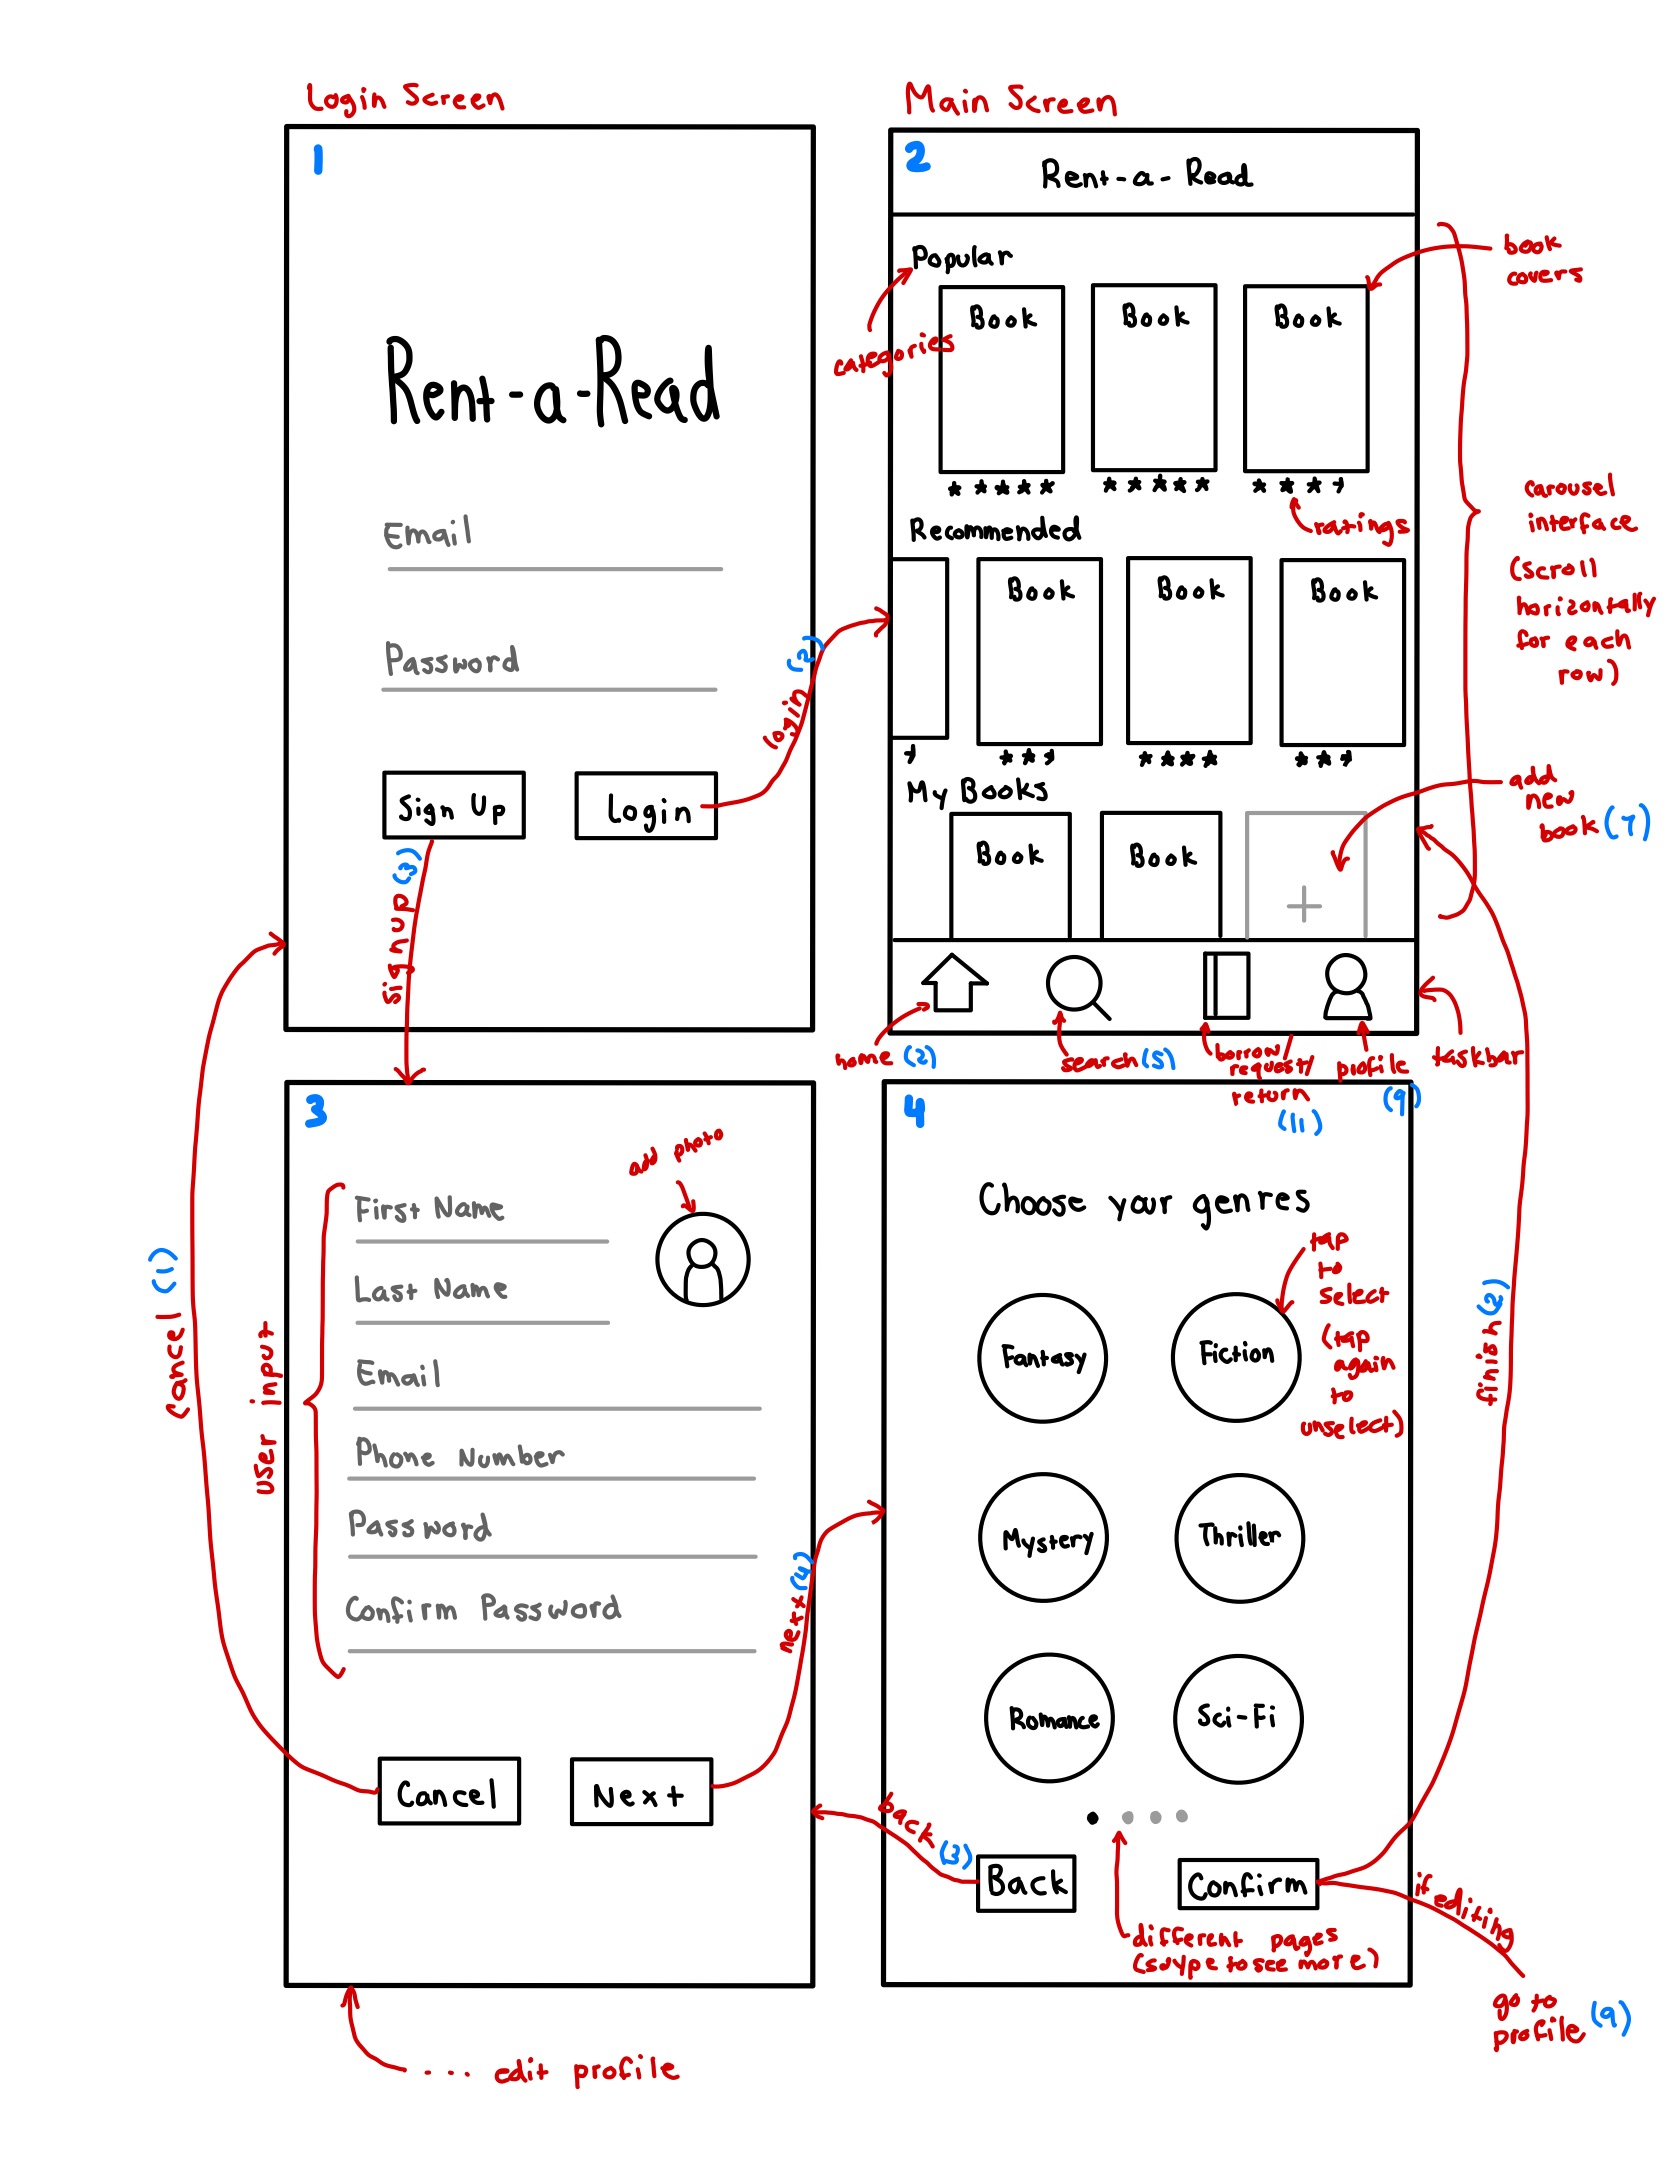 Login Screen
1
Rent-a-Read
Email
Password
Sign Up
Login
login (2)
signup (3)
Main Screen
2
Rent-a-Read
Popular
categories
Book
Book
Book
book
covers
* * * * *
* * * * *
* * *
ratings
Recommended
Book
Book
Book
* *
* * * *
* *
carousel
interface
(scroll
horizontally
for each
row)
My Books
Book
Book
+
add
new
book (7)
home (2)
search (5)
borrow
request/
return
(11)
profile
(9)
taskbar
3
add photo
First Name
Last Name
Email
Phone Number
Password
Confirm Password
user input
Cancel
Next
cancel (1)
next (4)
edit profile
4
Choose your genres
tap
to
select
(tap
again
to
unselect)
Fantasy
Fiction
Mystery
Thriller
Romance
Sci-Fi
back (3)
Back
Confirm
finish (2)
different pages
(swype to see more)
if editing
go to
profile (9)